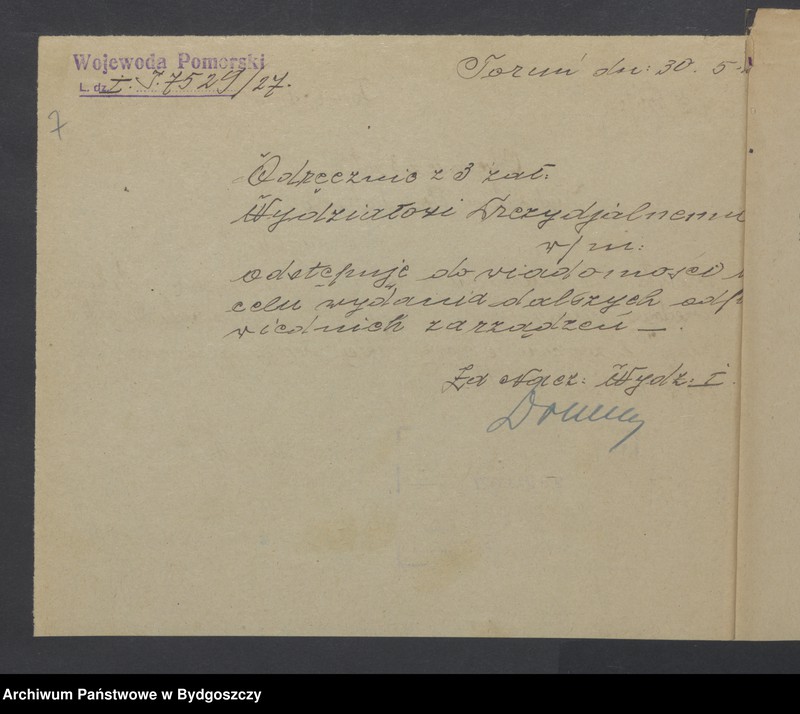 Wojewoda Pomorski
L. dz. I. J. 7529/27.
Toruń dn: 30. 5
7
Odręcznie z 3 zał:
Wydziałowi Prezydjalnemu
w/m:
odstępuję do wiadomości
celu wydania dalszych odp
wiednich zarządzeń —.
Za Nacz: Wydz: I.
Archiwum Państwowe w Bydgoszczy